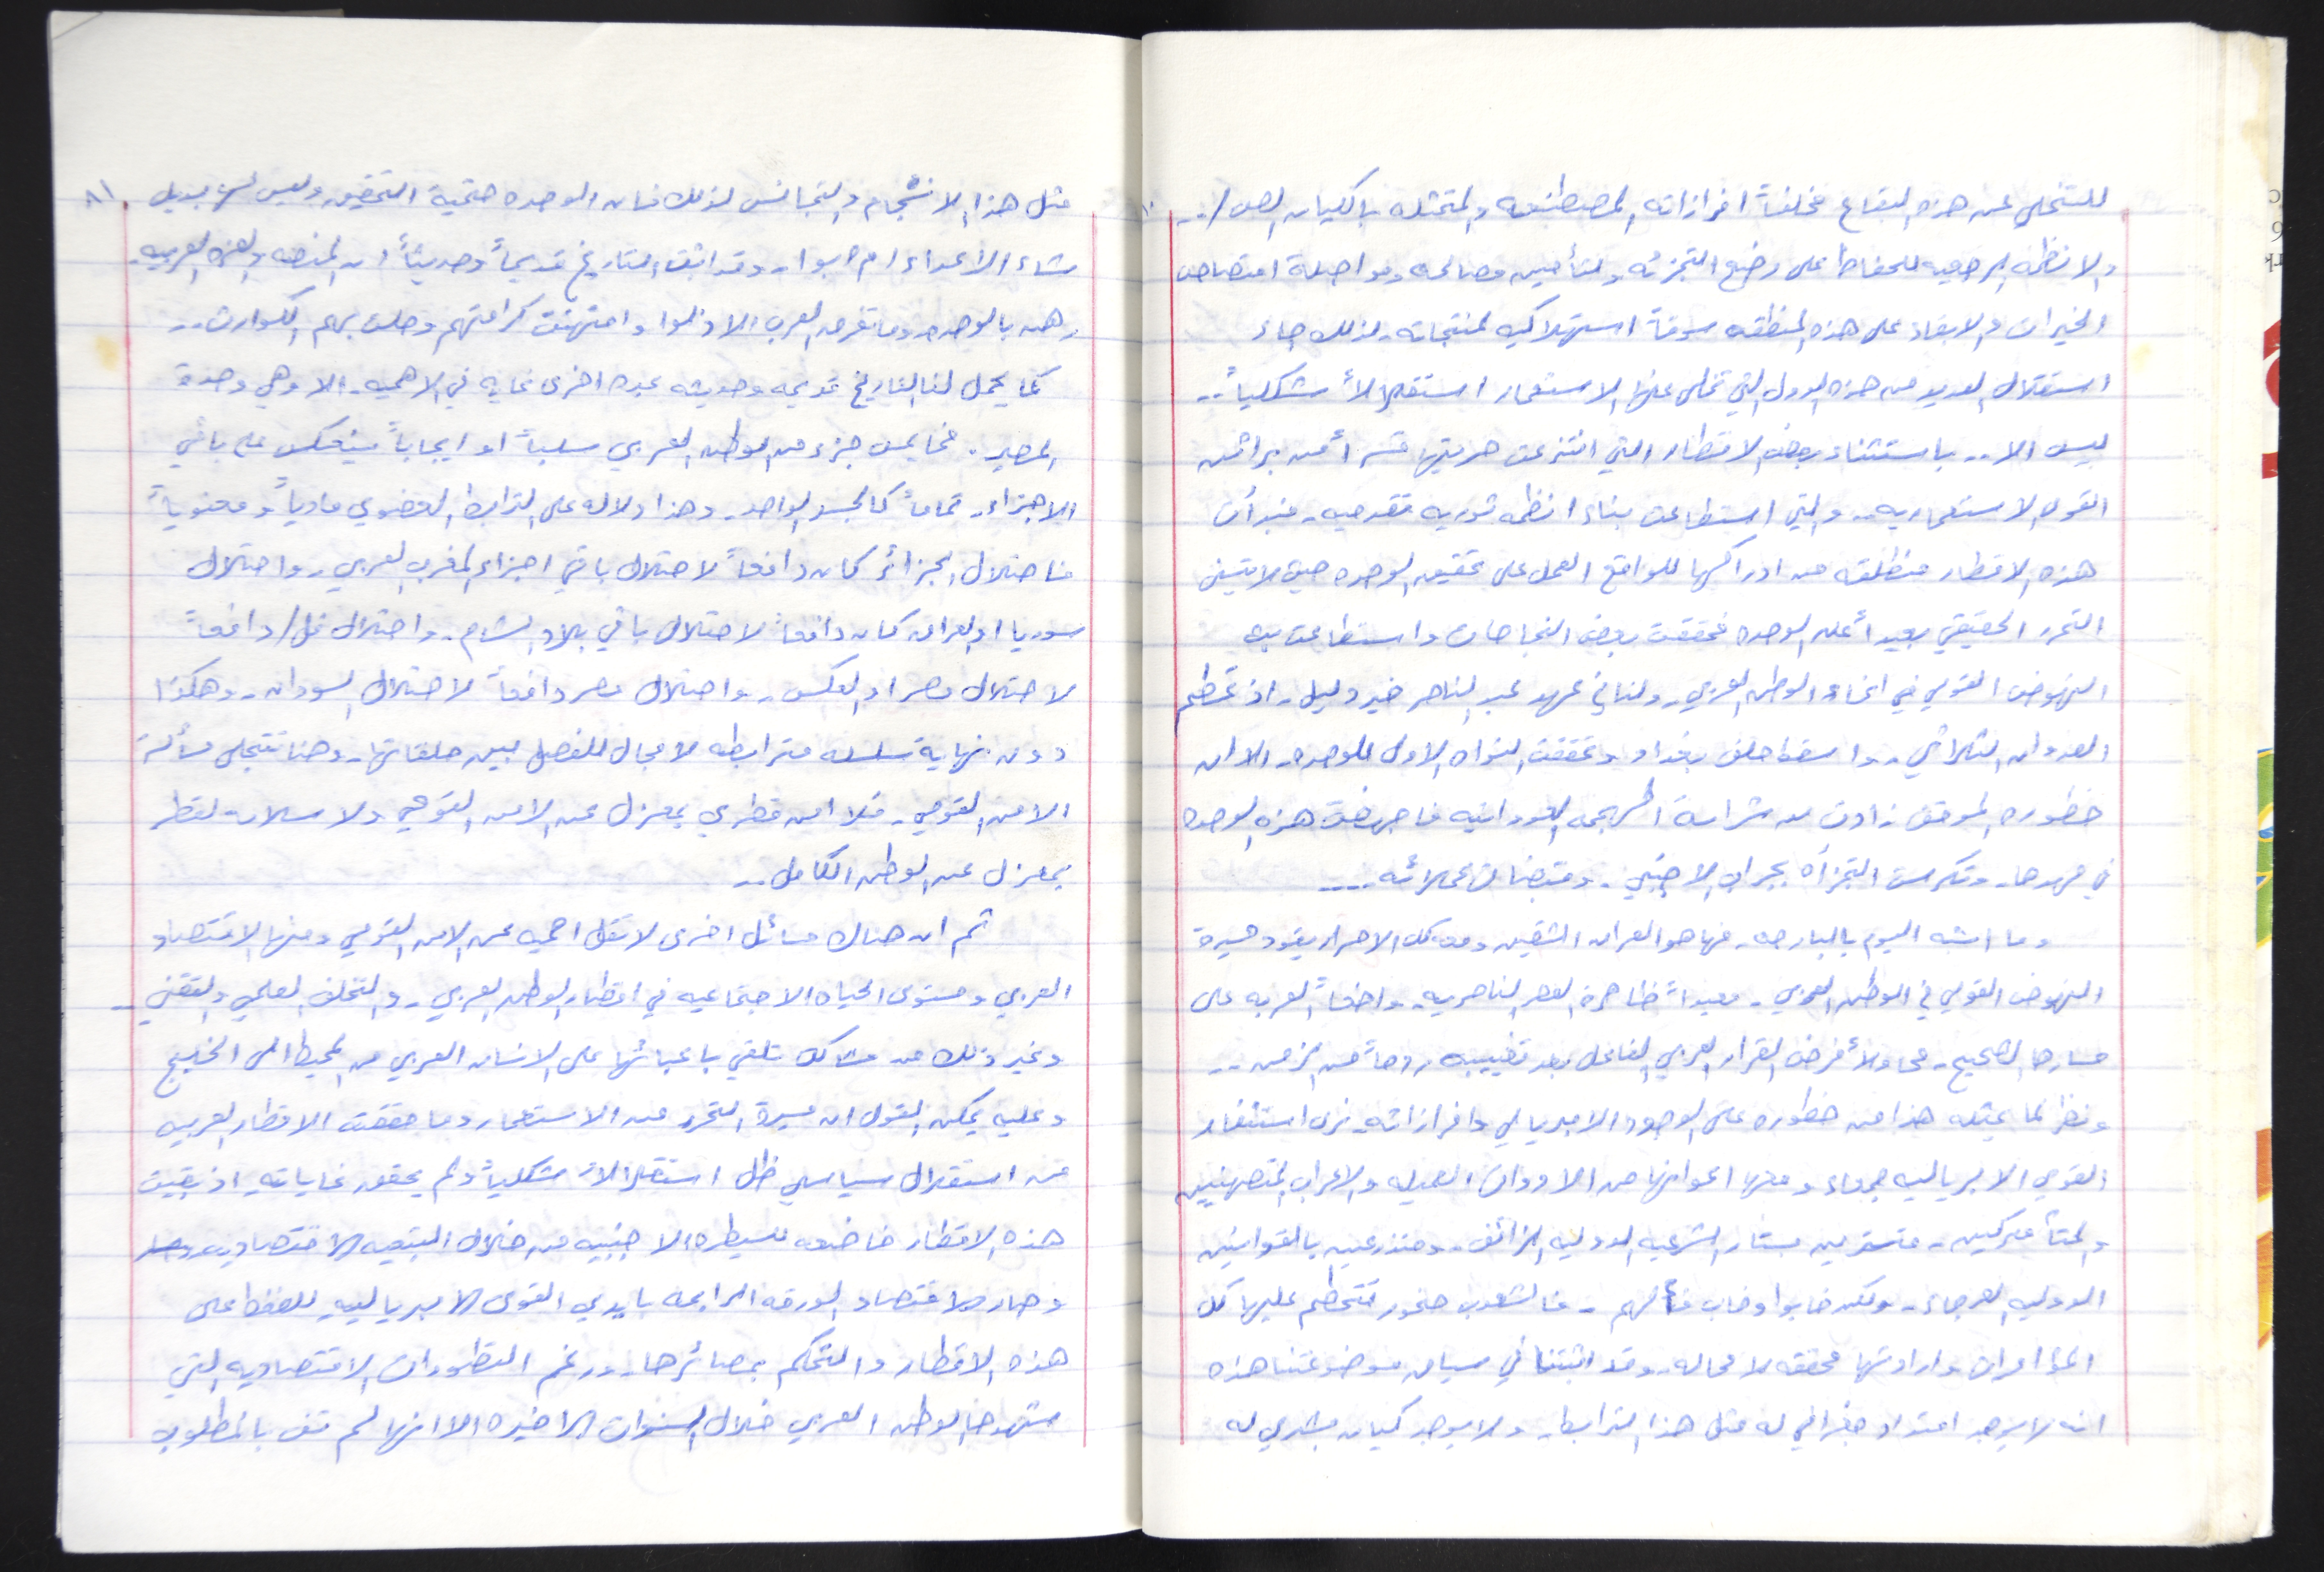 للتخلي عن هذه البقاع مخلفاً افرازاته المصطنعه والمتمثله بالكيان الص/..
والانظمه الرجعيه للحفاظ على وضع التجزئه ولتأمين مصالحه ومواصلة امتصاص
الخيرات والابقاء على هذه المنطقه سوقاً استهلاكيه لمنتجاته. لذلك جاء
استقلال العديد من هذه الدول التي تخلى عنها الاستعمار استقلالاً شكلياً..
ليس الا.. باستثناء بعض الاقطار التي انتزعت حريتها قسراً من براثن
القوى الاستعماريه. والتي استطاعت بناء انظمه ثوريه تقدميه. فبدأت
هذه الاقطار منطلقه من ادراكها للواقع العمل على تحقيق الوحده حيث لا يتسنى
التحرر الحقيقي بعيداً عن الوحده فحققت بعض النجاحات واستطاعت
النهوض القومي في انحاء الوطن العربي. ولنا في عهد عبد الناصر خير دليل. اذ تحطم
العدوان الثلاثي. واسقط حلف بغداد وتحققت النواه الاولى للوحده. الا ان
خطوره الموقف زادت من شراسة الهجمه العدوانيه فاجهضت هذه الوحده
في مهدها. وتكرست التجزأه بحراب الاجنبي. ومقبضات عملائه....
وما اشبه اليوم بالبارحه. فها هو العراق الشقيق ومعه كل الاحرار يقود مسيرة
النهوض القومي في الوطن العربي. معيداً ظاهرة العصر الناصريه. واضعاً العربه على
مسارها الصحيح. محاولاً فرض القرار العربي الفاعل بعد تغييبه ردحاً من الزمن..
ونظراً لما يمثله هذا من خطوره على الوجود الامبريالي وافرازاته. نرى استنفار
القوى الامبرياليه جمعاء ومعها اعوانها من الادوات العميله والاعراب المتصهينين
والمتأمركين. متسترين بستار الشرعيه الدوليه الزائف. ومتذرعين بالقوانين
الدوليه العرجاء. ولكن خابوا وخاب فألهم. فالشعوب صخور تتحطم عليها كل
المؤامرات وارادتها محققه لا محاله. وقد اثبتنا في سياق موضوعتنا هذه
انه لا يوجد امتداد جغرافي له مثل هذا الترابط. ولا يوجد كيان بشري له
٨١
مثل هذا الانسجام والتجانس لذلك فان الوحده حتمية التحقيق وليس لها بديل
شاء الاعداء ام ابوا. وقد اثبت التاريخ قديماً وحديثاً ان النهضه والعزه العربيه
رهن بالوحده وما تفرق العرب الا وذلوا وامتهنت كرامتهم وحلت بهم الكوارث..
كما يحمل لنا التاريخ قديمه وحديثه عبره اخرى غايه في الاهميه. الا وهي وحدة
المصير. فما يمس جزء من الوطن العربي سلباً او ايجاباً ينعكس على باقي
الاجزاء. تماماً كالجسد الواحد. وهذا دلاله على الترابط العضوي مادياً ومعنوياً
فاحتلال الجزائر كان دافعاً لاحتلال باقي اجزاء المغرب العربي. واحتلال
سوريا او العراق كان دافعاً لاحتلال باقي بلاد الشام. واحتلال فل/ دافعاً
لاحتلال مصر او العكس. واحتلال مصر دافعاً لاحتلال السودان. وهكذا
دون نهاية سلسله مترابطه لا مجال للفصل بين حلقاتها. وهنا تتجلى مسألة
الامن القومي. فلا امن قطري بمعزل عن الامن القومي ولا سلامه لقطر
بمعزل عن الوطن الكامل..
ثم ان هناك مسائل اخرى لا تقل اهميه عن الامن القومي ومنها الاقتصاد
العربي ومستوى الحياه الاجتماعيه في اقطار الوطن العربي. والتخلف العلمي والتقني.
وغير ذلك من مشاكل تلقي باعبائها على الانسان العربي من المحيط الى الخليج
وعليه يمكن القول ان مسيرة التحرر من الاستعمار وما حققت الاقطار العربيه
من استقلال سياسي ظل استقلالاً شكلياً ولم يحقق غاياته. اذ بقيت
هذه الاقطار خاضعه للسيطره الاجنبيه من خلال التبعيه الاقتصاديه وصار
وصار الاقتصاد الورقه الرابحه بايدي القوى الامبرياليه للضغط على
هذه الاقطار والتحكم بمصائرها. ورغم التطورات الاقتصاديه التي
شهدها الوطن العربي خلال السنوات الاخيره الا انها لم تف بالمطلوب